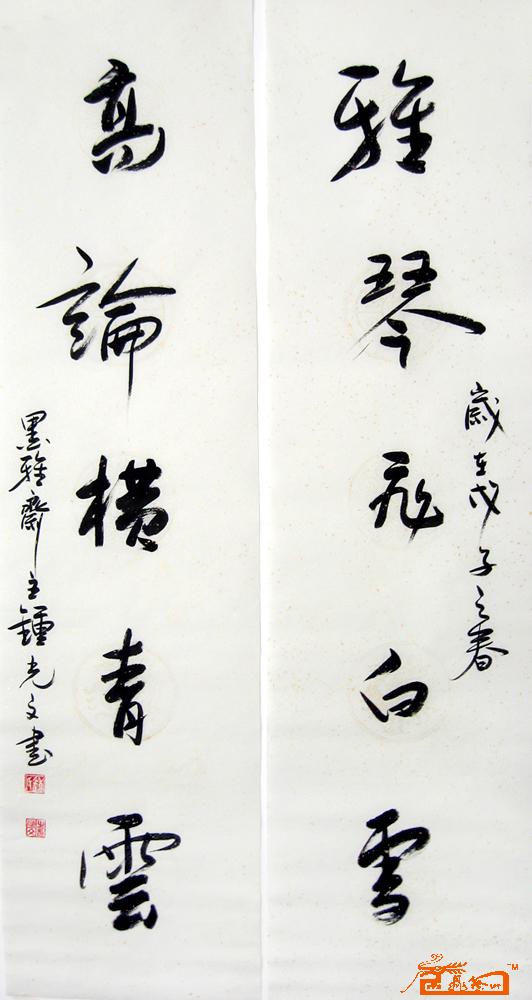 雅琴飛白雪
歲在戊子之春
高論橫青雲
墨雅齋主鍾光文書